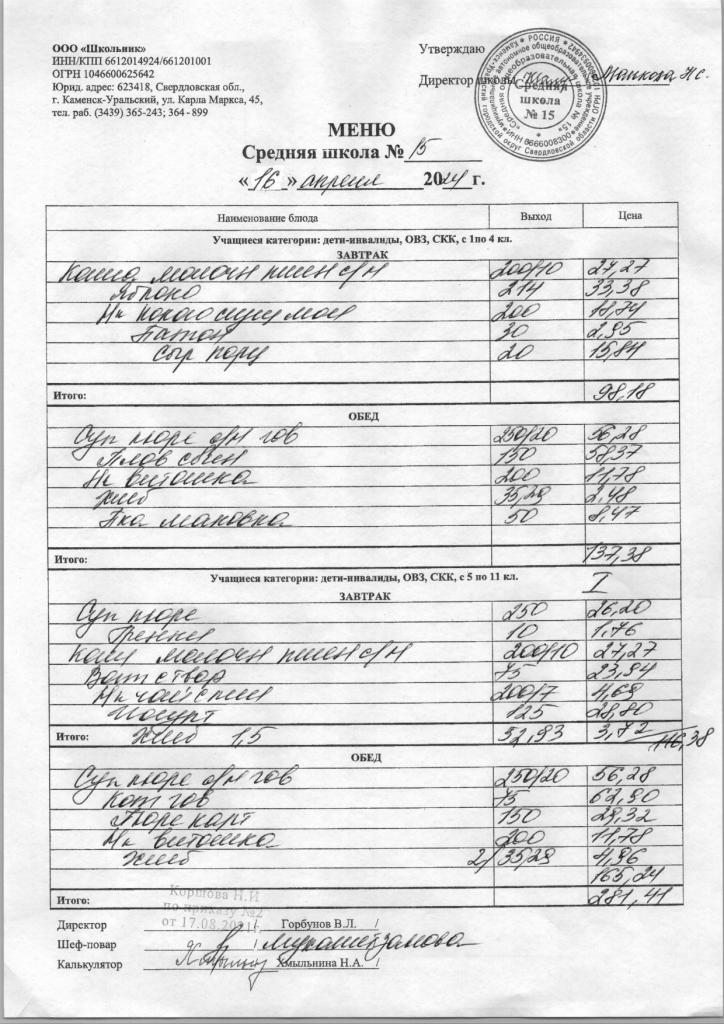 ООО «Школьник»
ИНН/КПП 6612014924/661201001
ОГРН 1046600625642
Юрид. адрес: 623418, Свердловская обл.,
г. Каменск-Уральский, ул. Карла Маркса, 45,
тел. раб. (3439) 365-243; 364 - 899
Утверждаю
Директор школы
Средняя
школа
№ 15
МЕНЮ
Средняя школа № 15
«16» апреля 2024 г.
Наименование блюда Выход Цена
Учащиеся категории: дети-инвалиды, ОВЗ, СКК, с 1по 4 кл.
ЗАВТРАК
Каша молочн пшен с/м 200/10 27,27
Яблоко 214 33,38
Нк какао сгущ мол 200 18,74
Батон 30 2,95
Сыр порц 20 15,84
Итого: 98,18
ОБЕД
Суп пюре с/м гов 250/20 56,28
Плов свин 150 58,37
Нк витошка 200 11,78
Хлеб 35,29 2,48
Пка маковка 50 8,47
Итого: 137,38
Учащиеся категории: дети-инвалиды, ОВЗ, СКК, с 5 по 11 кл. I
ЗАВТРАК
Суп пюре 250 26,20
Гренки 10 1,76
Каша молочн пшен с/м 200/10 27,27
Ват с твор 75 23,94
Нк чай с лим 200/7 4,69
Йогурт 125 28,80
Итого: Хлеб 1,5 52,93 3,72 116,38
ОБЕД
Суп пюре с/м гов 250/20 56,28
Кот гов 75 62,90
Пюре карт 150 29,32
Нк витошка 200 11,78
Хлеб 2/35,29 4,96
165,24
Итого: 281,41
Коршова Н.И
по приказу №2
от 17.08.2021г.
Директор / Горбунов В.Л. /
Шеф-повар /
Калькулятор / Хмыльнина Н.А. /